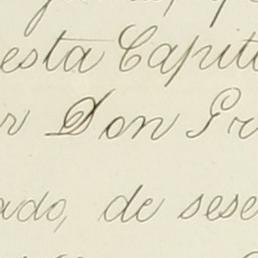 esta Capit
r Don Fr
ado, de sese